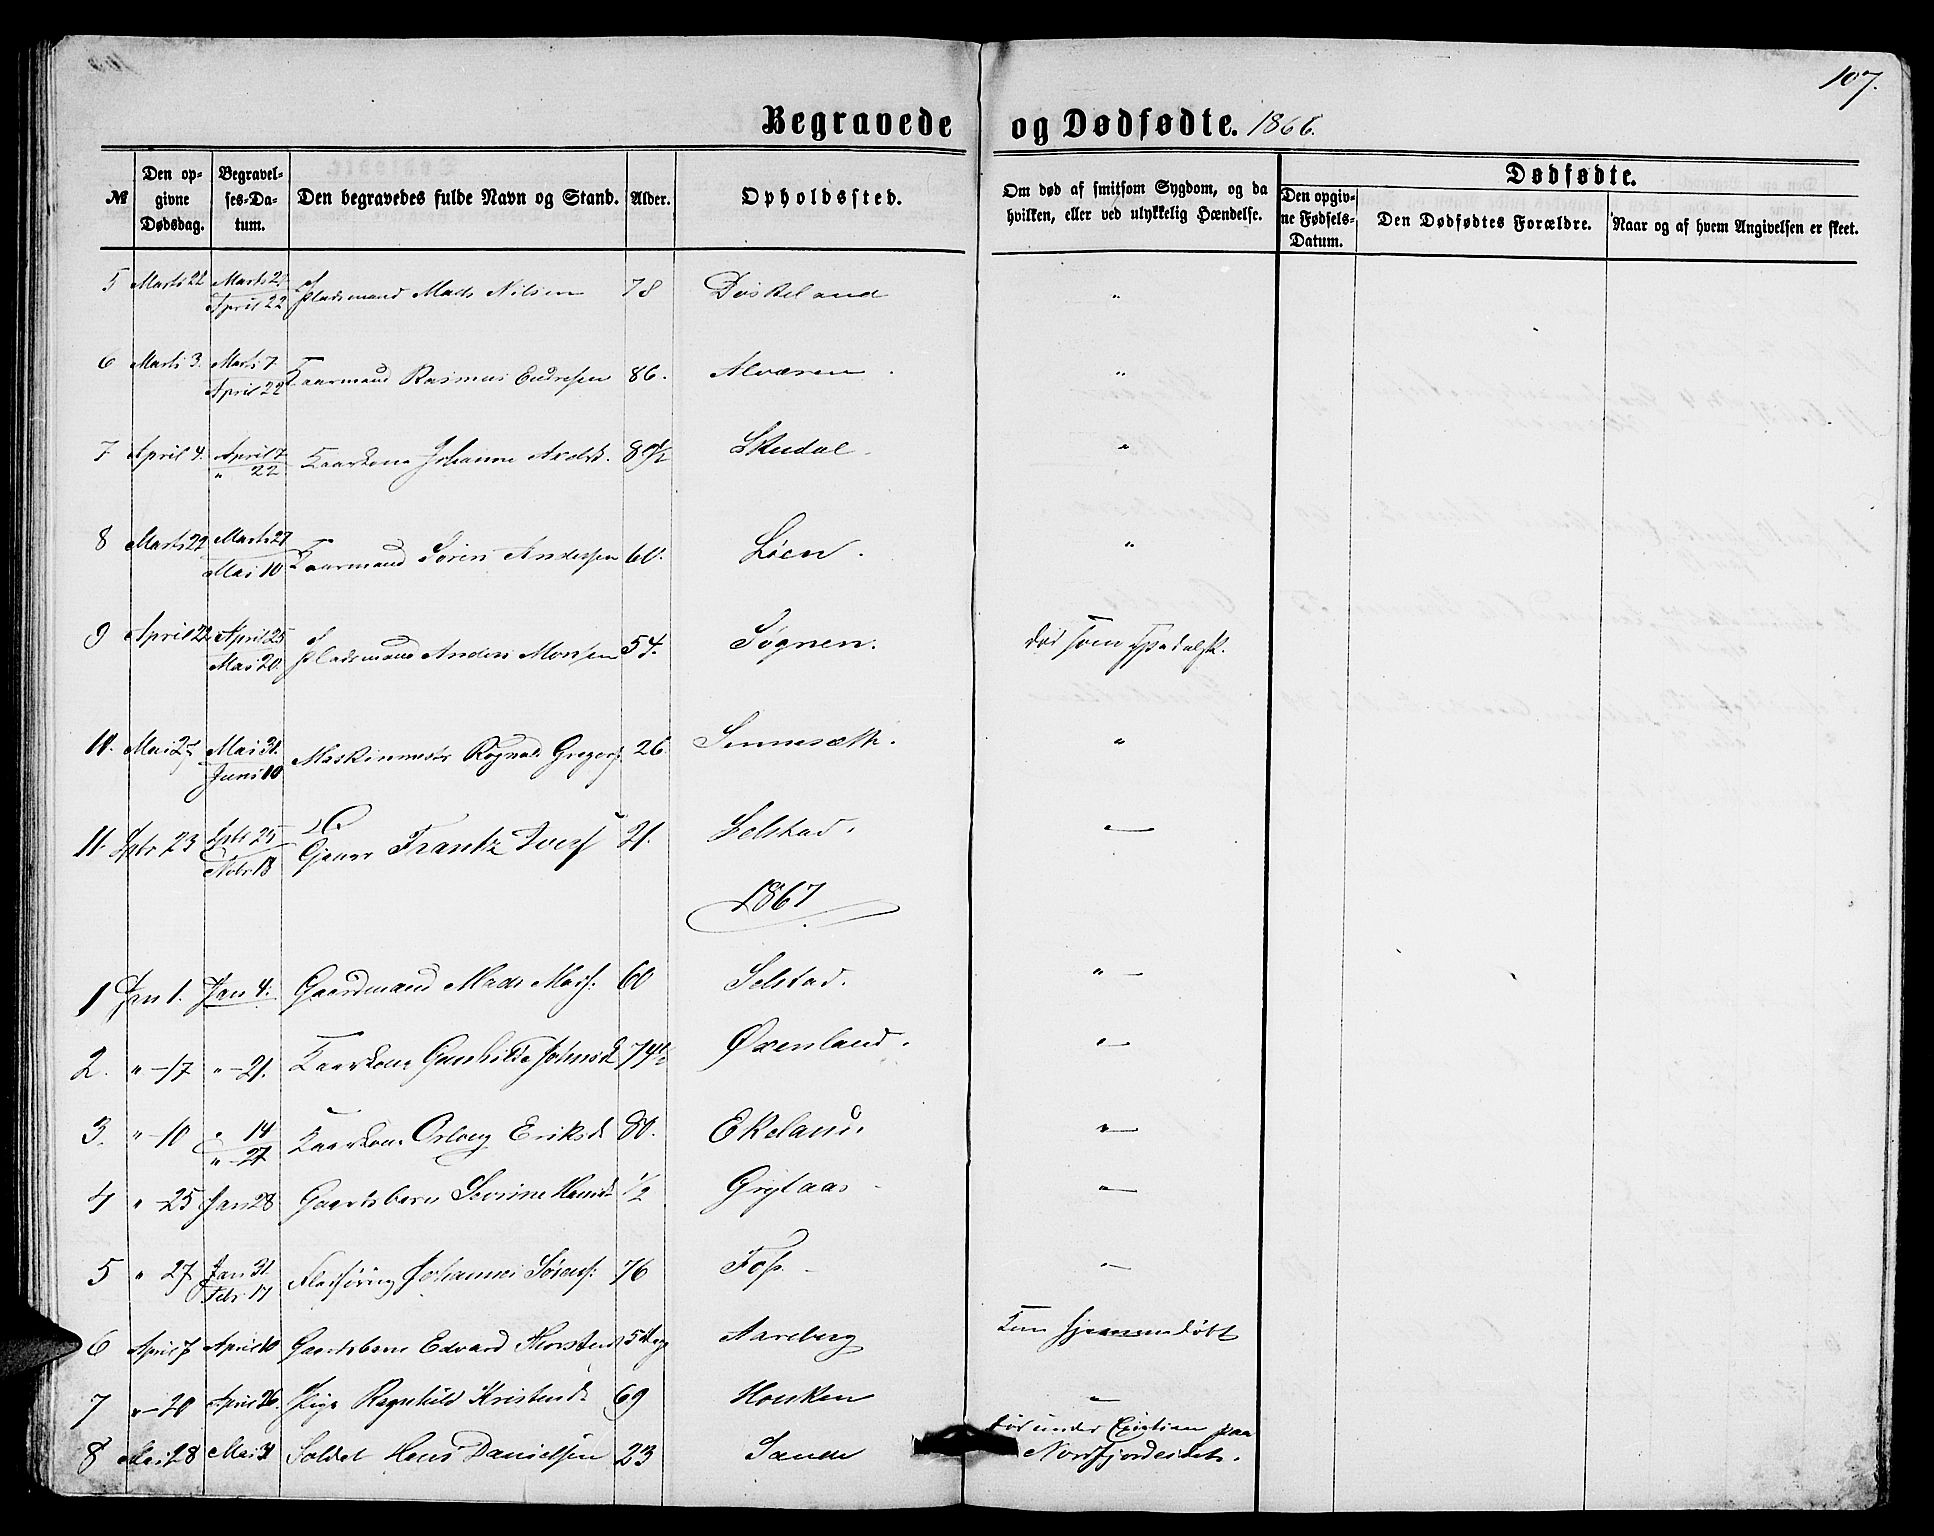 107.
Begravede og Dødfødte. 1866.
№ Den opgivne Dødsdag. Begravelses-Datum. Den begravedes fulde Navn og Stand. Alder. Opholdssted. Om død af smitsom Sygdom, og da hvilken, eller ved ulykkelig Hændelse. Dødfødte.
Den opgivne Fødsels-Datum. Den Dødfødtes Forældre. Naar og af hvem Angivelsen er skeet.
5 Marts 22 Marts 2 April 22 Pladsmand Mads Nilsen 78 Døskeland "
6 Marts 3. Marts 7 April 22 Kaarmand Rasmus Endresen 86. Alværen "
7 April 4. April 7 " 22 Kaarkone Johanne 89½ Skudal. "
8 Marts 22 Marts 27 Mai 10 Kaarmand Søren Anderssen 60. Løen. "
9 April 22 April 25 Mai 20. Pladsmand Anders Monsen 54. Søgnen. død som spedalsk.
10. Mai 27 Mai 31. Juni 10 Maskinmester Rognald Gregers. 26. Sennesæth. "
11. Sptr 23 Sptr 25 Nobr 18 Gjener Frantz Ivers 21. Selstad. "
1867
1 Jan 1. Jan 4. Gaardmand Mads Mads. 60 Selstad. "
2. " 17 " 21. Kaarkone Gunhilde Johnsd 74½ Øxenland. "
3. " 10 " 14 " 27 Kaarkone Eriksd 80. Ekeland. "
4 " 25 Jan 28 Gaardsbarn Hansd ½ Grytaas "
5 " 27 Jan 31 Febr 17 Johannes Sørens. 76 Foss. "
6 April 7 April 10 Gaardsbarn Edvard Thorstens 5 Aareberg Kun hjemmedøbt
7 " 20 April 26. Pige Ragnhild Kristensd. 69 Houken "
8 Mai 28 Mai 31 Soldat Hans Danielsen 23 Sande død under paa Nordfjordeidet.